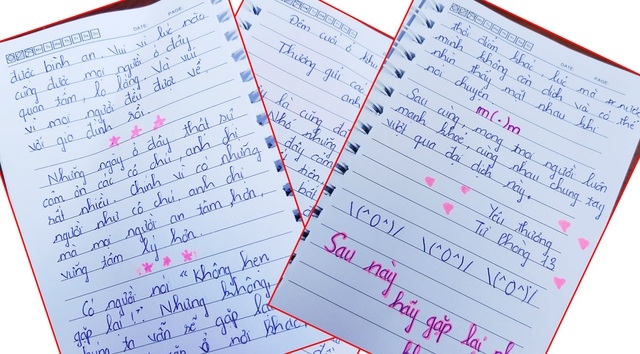 được bình an. Vui vì lúc nào
cũng được mọi người ở đây
quan tâm, lo lắng. Và vui
vì mọi người đều được về
với gia đình rồi.
Những ngày ở đây thật sự
cảm ơn các cô chú, anh chị
rất nhiều. Chính vì có những
người như cô chú, anh chị
mà mọi người an tâm hơn
vững tâm lý hơn.
Có người nói "Không hẹn
gặp lại!" Nhưng không,
ta vẫn sẽ gặp lại
ở nơi khác
Đêm cuối ở khu
Thương gửi các
anh
là cũng đã
Nhớ những
đây cảm
DATE PAGE
thời điểm khác, lúc mà
mình không còn dịch và có thể
nhìn thấy mặt nhau khi
nói chuyện.
m(.)m
Sau cùng, mong mọi người luôn
mạnh khoẻ, cùng nhau chung tay
vượt qua đại dịch này.
Yêu thương
Từ phòng 13
\(^O^)/ \(^O^)/ \(^O^)/
Sau này
hãy gặp lại